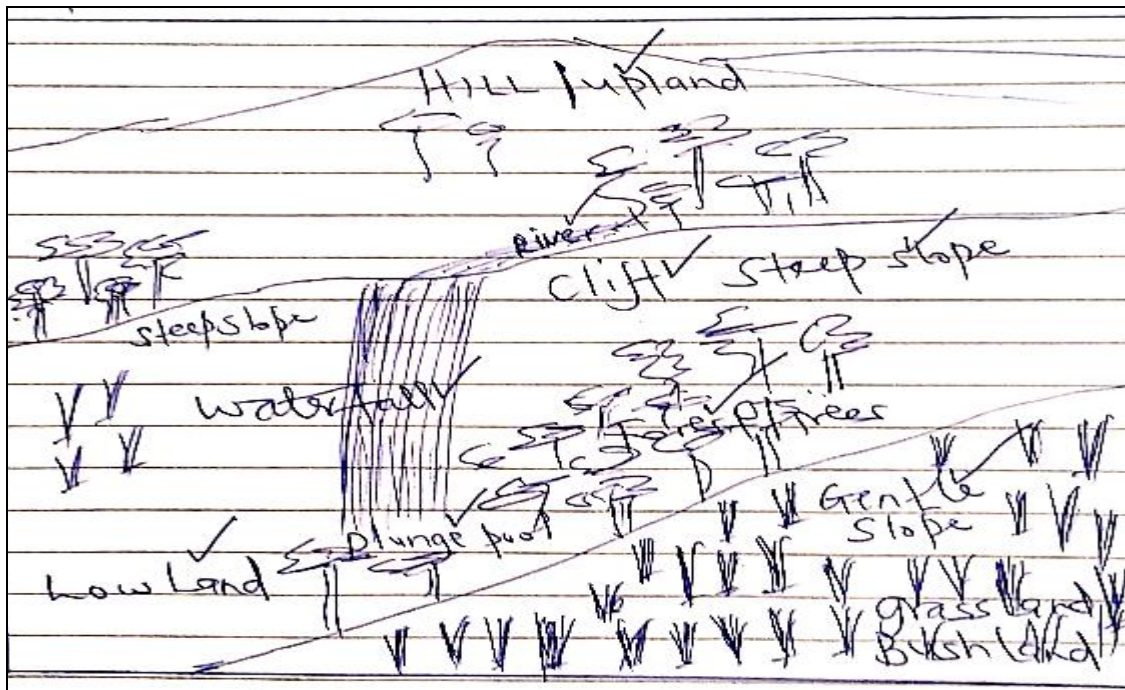 HILL / upland
River
Clift Steep slope
steepslope
Waterfall
Forest Trees
Gentle
Slope
plunge pool
Low Land
Grass land
Bush land